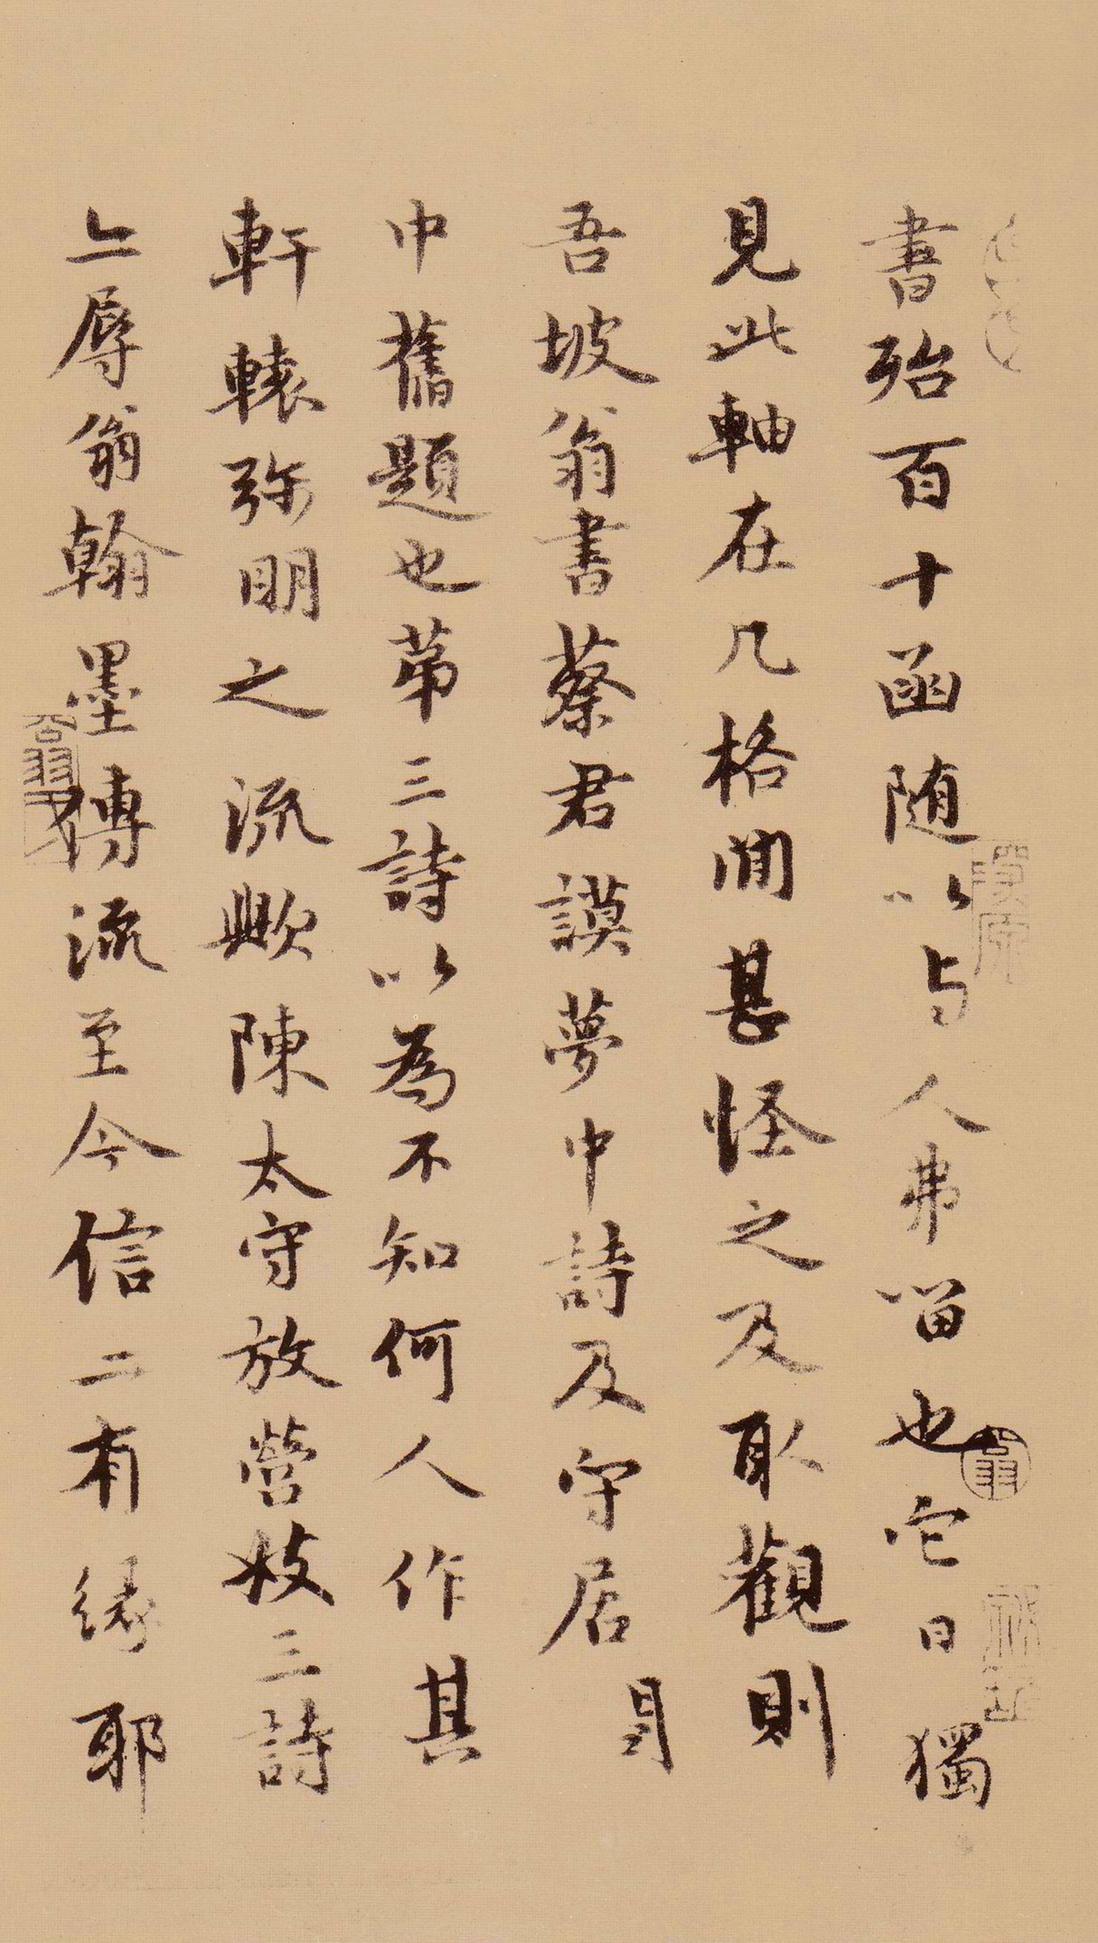 書殆百十函随以与人弗留也它日獨
見此軸在几格間甚怪之及取觀則
吾坡翁書蔡君謨夢中詩及守居閣
中舊題也苐三詩以為不知何人作其
軒轅弥明之流歟陳太守放營妓三詩
亦辱翁翰墨傳流至今信亦有緣耶